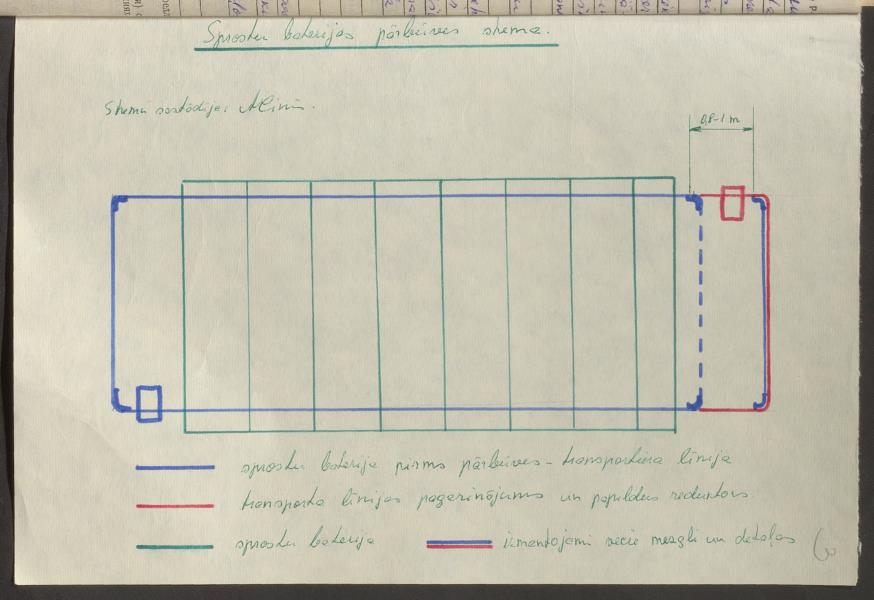 Sprostu baterijas pārbūves shema.
Shemu sastādīja:
0,8-1 m
sprostu baterija pirms pārbūves - transportiera līnija
transporta līnijas pagarinājums un papildus reduktors.
sprostu baterija
izmantojami vecie mezgli un detaļas